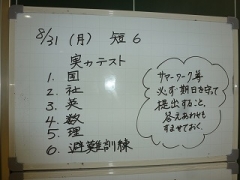 8/31 (月) 短6
実力テスト
1. 国
2. 社
3. 英
4. 数
5. 理
6. 避難訓練
サマーワーク等
必ず期日を守って
提出すること。
答えあわせも
すませておく。